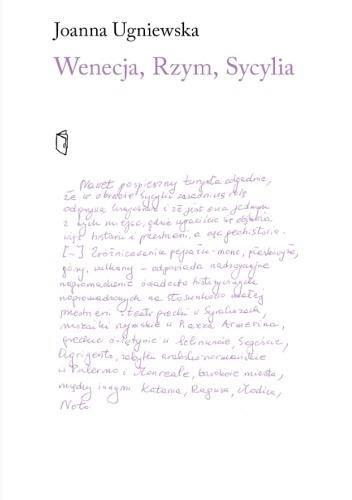 Joanna Ugniewska
Wenecja, Rzym, Sycylia
Nawet pospieszny turysta odgadnie,
że w obrazie Sycylii zasadniczą rolę
odgrywa krajobraz i że jest ona jednym
z tych miejsc, gdzie wyraziście się objawia
więź historii i przestrzeni, a więc geohistoria.
[...] Zróżnicowanie pejzażu – morze, płaskowyże,
góry, wulkany – odpowiada nadzwyczajne
nagromadzenie świadectw historycznych
nagromadzonych na stosunkowo małej
przestrzeni: teatr grecki w Syrakuzach,
mozaiki rzymskie w Piazza Armerina,
greckie świątynie w Selinuncie, Segeście,
Agrigento, zabytki arabsko-normańskie
w Palermo i Monreale, barokowe miasta,
między innymi Katania, Ragusa, Modica,
Noto.